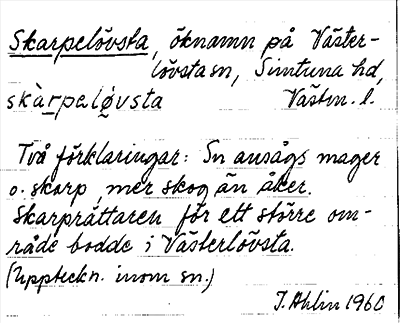 Skarpelövsta, öknamn på Väster-
lövsta sn, Simtuna hd,
skàrpelø̜vsta Västm. l.
Två förklaringar: Sn ansågs mager
o. skarp, mer skog än åker.
Skarprättaren för ett större om-
råde bodde i Västerlövsta.
(Uppteckn. inom sn.)
J. Ahlin 1960